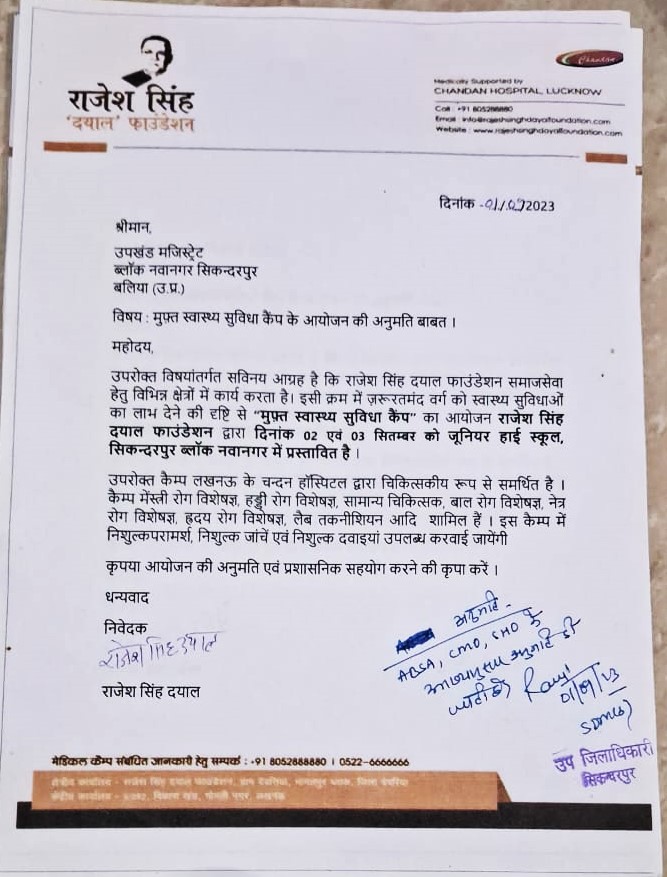 राजेश सिंह
'दयाल' फाउंडेशन
Chandan
Medically Supported by
CHANDAN HOSPITAL, LUCKNOW
Call : +91 8052888880
Email : info@rajeshsinghdayalfoundation.com
Website : www.rajeshsinghdayalfoundation.com
दिनांक -01/09/2023
श्रीमान,
उपखंड मजिस्ट्रेट
ब्लॉक नवानगर सिकन्दरपुर
बलिया (उ.प्र.)
विषय : मुफ़्त स्वास्थ्य सुविधा कैंप के आयोजन की अनुमति बाबत ।
महोदय,
उपरोक्त विषयांतर्गत सविनय आग्रह है कि राजेश सिंह दयाल फाउंडेशन समाजसेवा
हेतु विभिन्न क्षेत्रों में कार्य करता है। इसी क्रम में ज़रूरतमंद वर्ग को स्वास्थ्य सुविधाओं
का लाभ देने की दृष्टि से “मुफ़्त स्वास्थ्य सुविधा कैंप” का आयोजन राजेश सिंह
दयाल फाउंडेशन द्वारा दिनांक 02 एवं 03 सितम्बर को जूनियर हाई स्कूल,
सिकन्दरपुर ब्लॉक नवानगर में प्रस्तावित है ।
उपरोक्त कैम्प लखनऊ के चन्दन हॉस्पिटल द्वारा चिकित्सकीय रूप से समर्थित है ।
कैम्प मेंस्त्री रोग विशेषज्ञ, हड्डी रोग विशेषज्ञ, सामान्य चिकित्सक, बाल रोग विशेषज्ञ, नेत्र
रोग विशेषज्ञ, ह्रदय रोग विशेषज्ञ, लैब तकनीशियन आदि शामिल हैं । इस कैम्प में
निशुल्कपरामर्श, निशुल्क जांचें एवं निशुल्क दवाइयां उपलब्ध करवाई जायेंगी
कृपया आयोजन की अनुमति एवं प्रशासनिक सहयोग करने की कृपा करें ।
धन्यवाद
निवेदक
राजेश सिंह दयाल
राजेश सिंह दयाल
अनुमति -
ABSA, CMO, SHO के
अनुमति दी
01/09/23
SDM(S)
उप जिलाधिकारी
सिकन्दरपुर
मेडिकल कैम्प संबंधित जानकारी हेतु सम्पर्क : +91 8052888880 | 0522-6666666
क्षेत्रीय कार्यालय - राजेश सिंह दयाल फाउंडेशन, ग्राम देवसिया, भागलपुर ब्लाक, जिला देवरिया
केंद्रीय कार्यालय - विकास खंड, गोमती नगर, लखनऊ